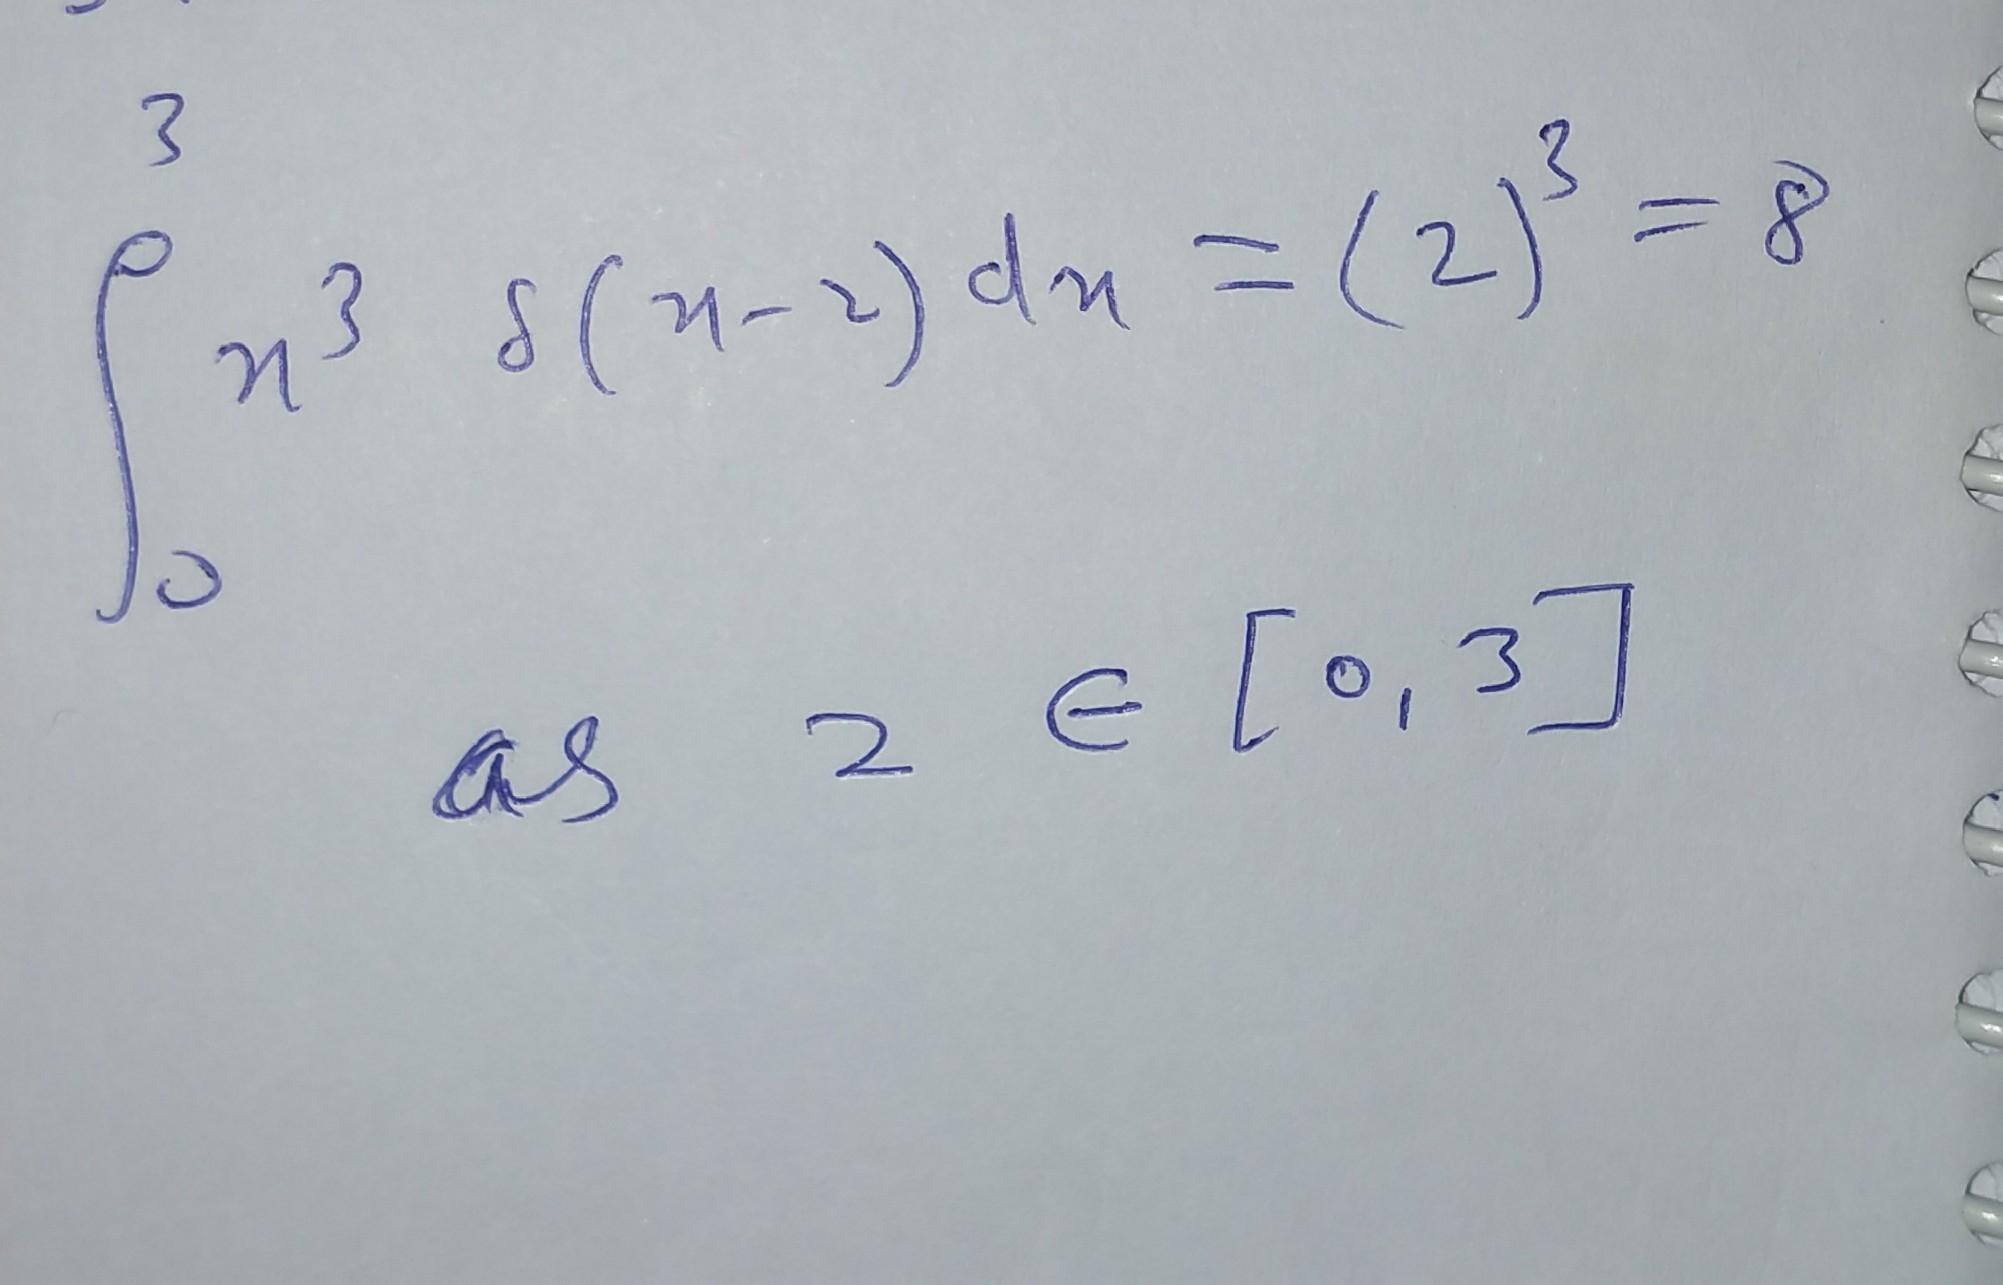 ∫₀³ x³ δ(x-2) dx = (2)³ = 8
as 2 ∈ [0, 3]